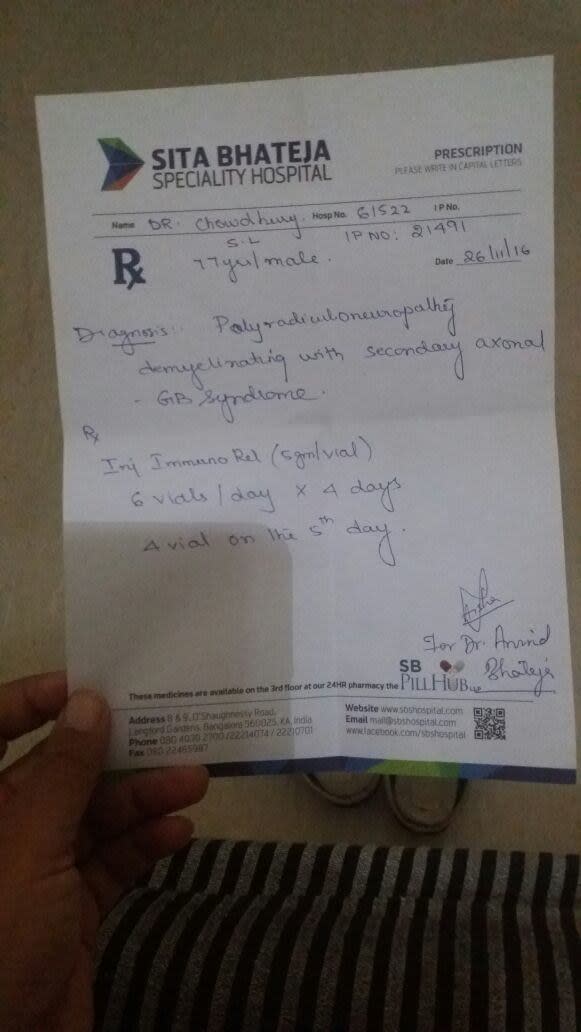 SITA BHATEJA
SPECIALITY HOSPITAL
PRESCRIPTION
PLEASE WRITE IN CAPITAL LETTERS
Name DR. Chowdhury S.L Hosp No. 61522 IP No.
IP NO: 21491
Rx 77yr/male. Date 26/11/16
Diagnosis: Polyradiculoneuropathy
demyelinating with secondary axonal
- GB Syndrome.
Rx
Inj Immuno Rel (5gm/vial)
6 vials/day x 4 days
4 vial on the 5th day.
For Dr. Arvind
Bhateja
SB
PILL HUB LLP
These medicines are available on the 3rd floor at our 24HR pharmacy the
Address 8 & 9, O'Shaughnessy Road,
Langford Gardens, Bangalore 560025, KA, India
Phone 080 4030 2700 / 22214074 / 22210701
Fax 080 22465987
Website www.sbshospital.com
Email mail@sbshospital.com
www.facebook.com/sbshospital